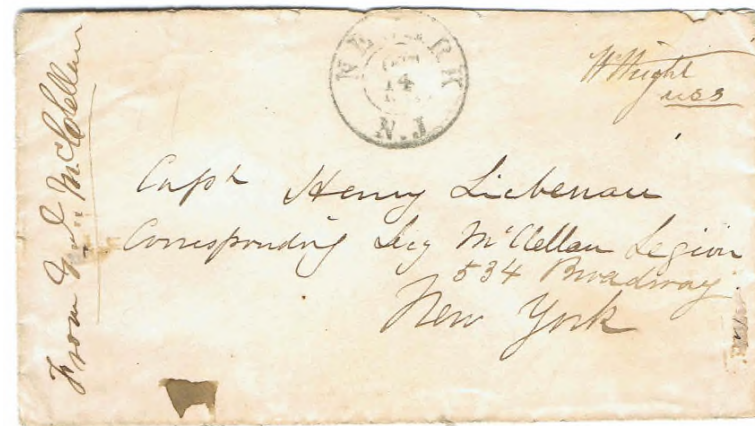 From Genl McClellan
NEWARK
14
N.J
W Wright
USS
Capt Henry Liebenau
Corresponding Secy McClellan Legion
534 Broadway
New York